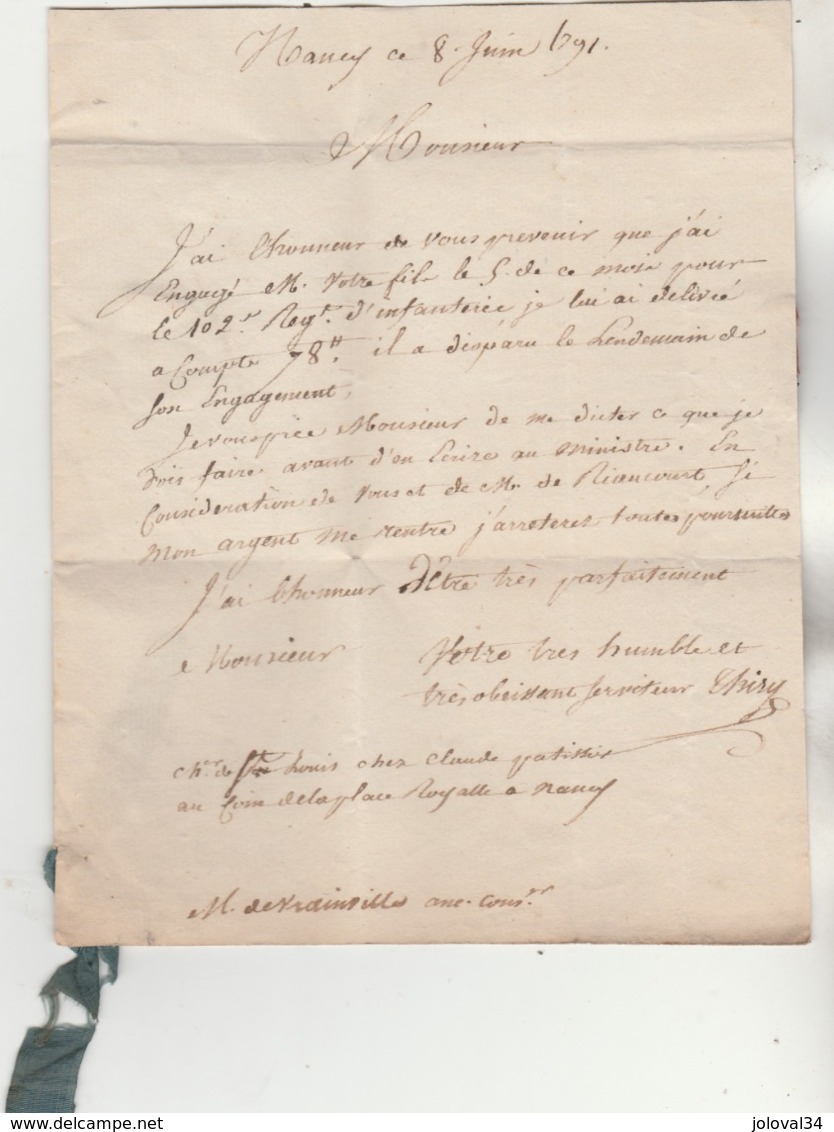 Nancy ce 8. Juin 1791.
Monsieur
J'ai l'honneur de vous prevenir que j'ai
Engagé M. Votre fils le 5. de ce mois pour
le 102.e Regt. d'infanterie je lui ai delivré
a Compte 78 tt. il a disparu le Lendemain de
son Engagement,
Je vous prie Monsieur de me dicter ce que je
dois faire avant d'en Ecrire au ministre. En
Consideration de Vous et de Mr de Riocourt, si
mon argent me rentre j'arreterez toutes poursuittes
J'ai l'honneur d'Etre très parfaitement
Monsieur Votre tres humble et
très obeissant serviteur Thiry
chr. de St Louis chez Claude patissier
au Coin de la place Royalle a nancy
M. de Vrainville anc. Conser
joloval34